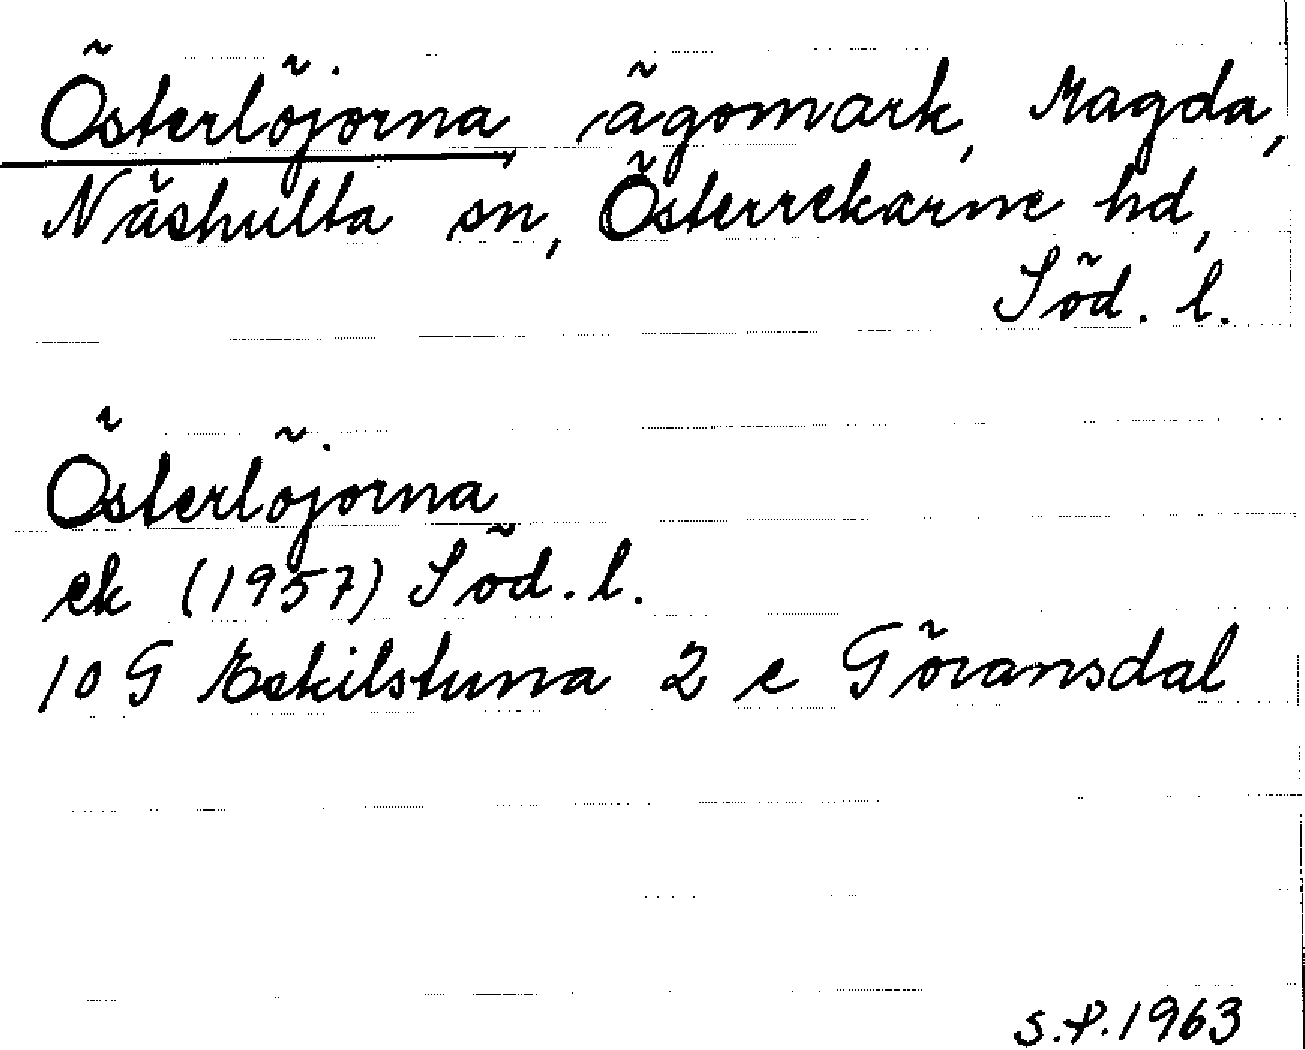 Österlöjorna, ägomark, Magda,
Näshulta sn, Österrekarne hd,
Söd. l.
Österlöjorna
ek (1957) Söd. l.
10 G Eskilstuna 2 e Göransdal
S.P. 1963